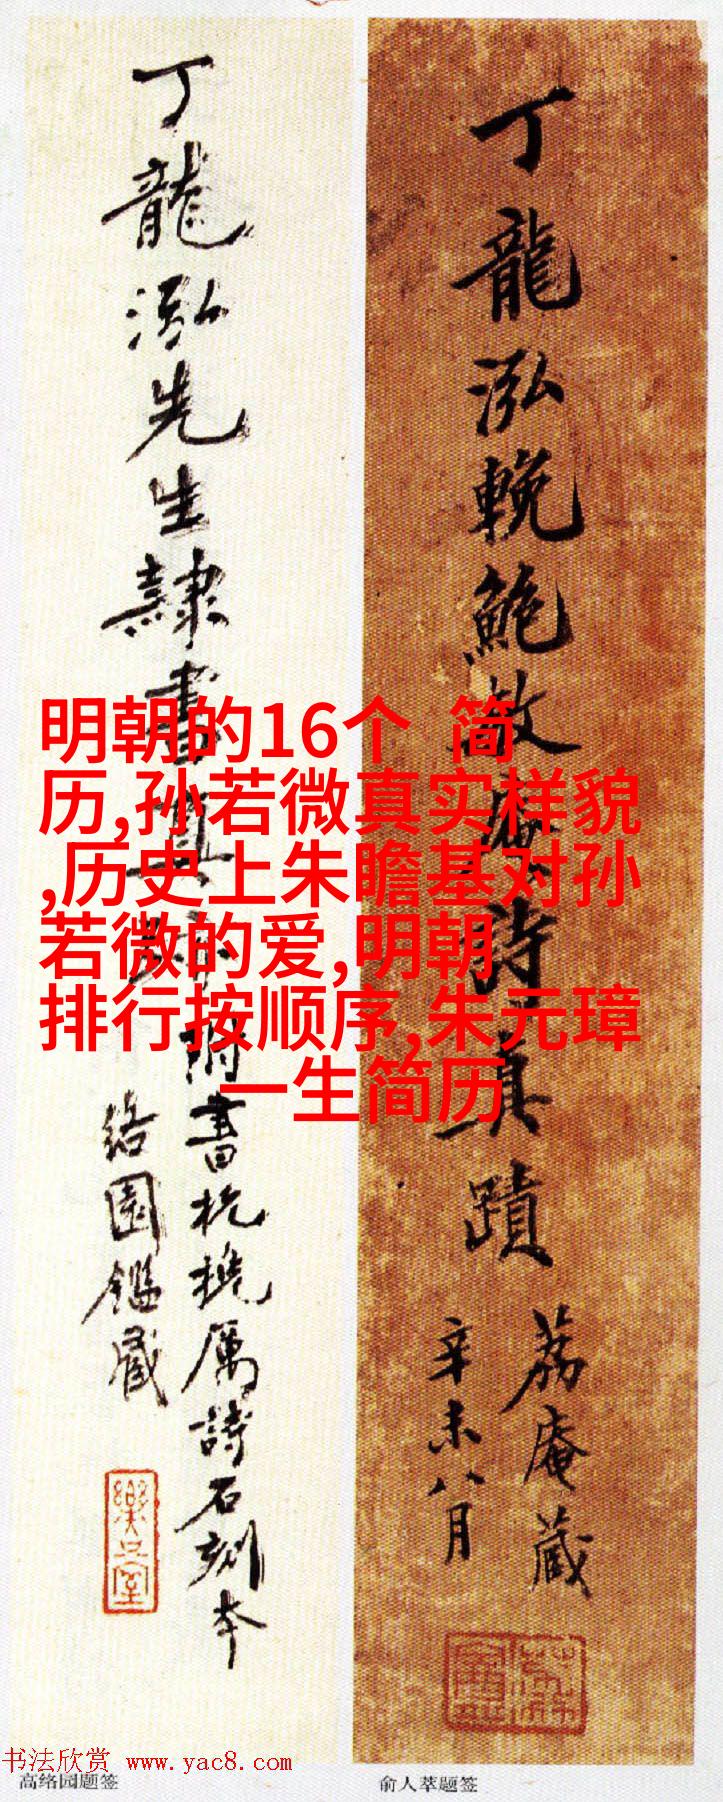 丁龍泓輓鮑敬庵詩真蹟
荔庵藏
辛未八月
丁龍泓先生隸書真跡
附書杭
厲詩石刻本
絡園鑑藏
明朝的16个 简
历,孙若微真实样貌
,历史上朱瞻基对孙
若微的爱,明朝
排行按顺序,朱元璋
一生简历
书法欣赏 www.yac8.com
高络园题签
俞人萃题签